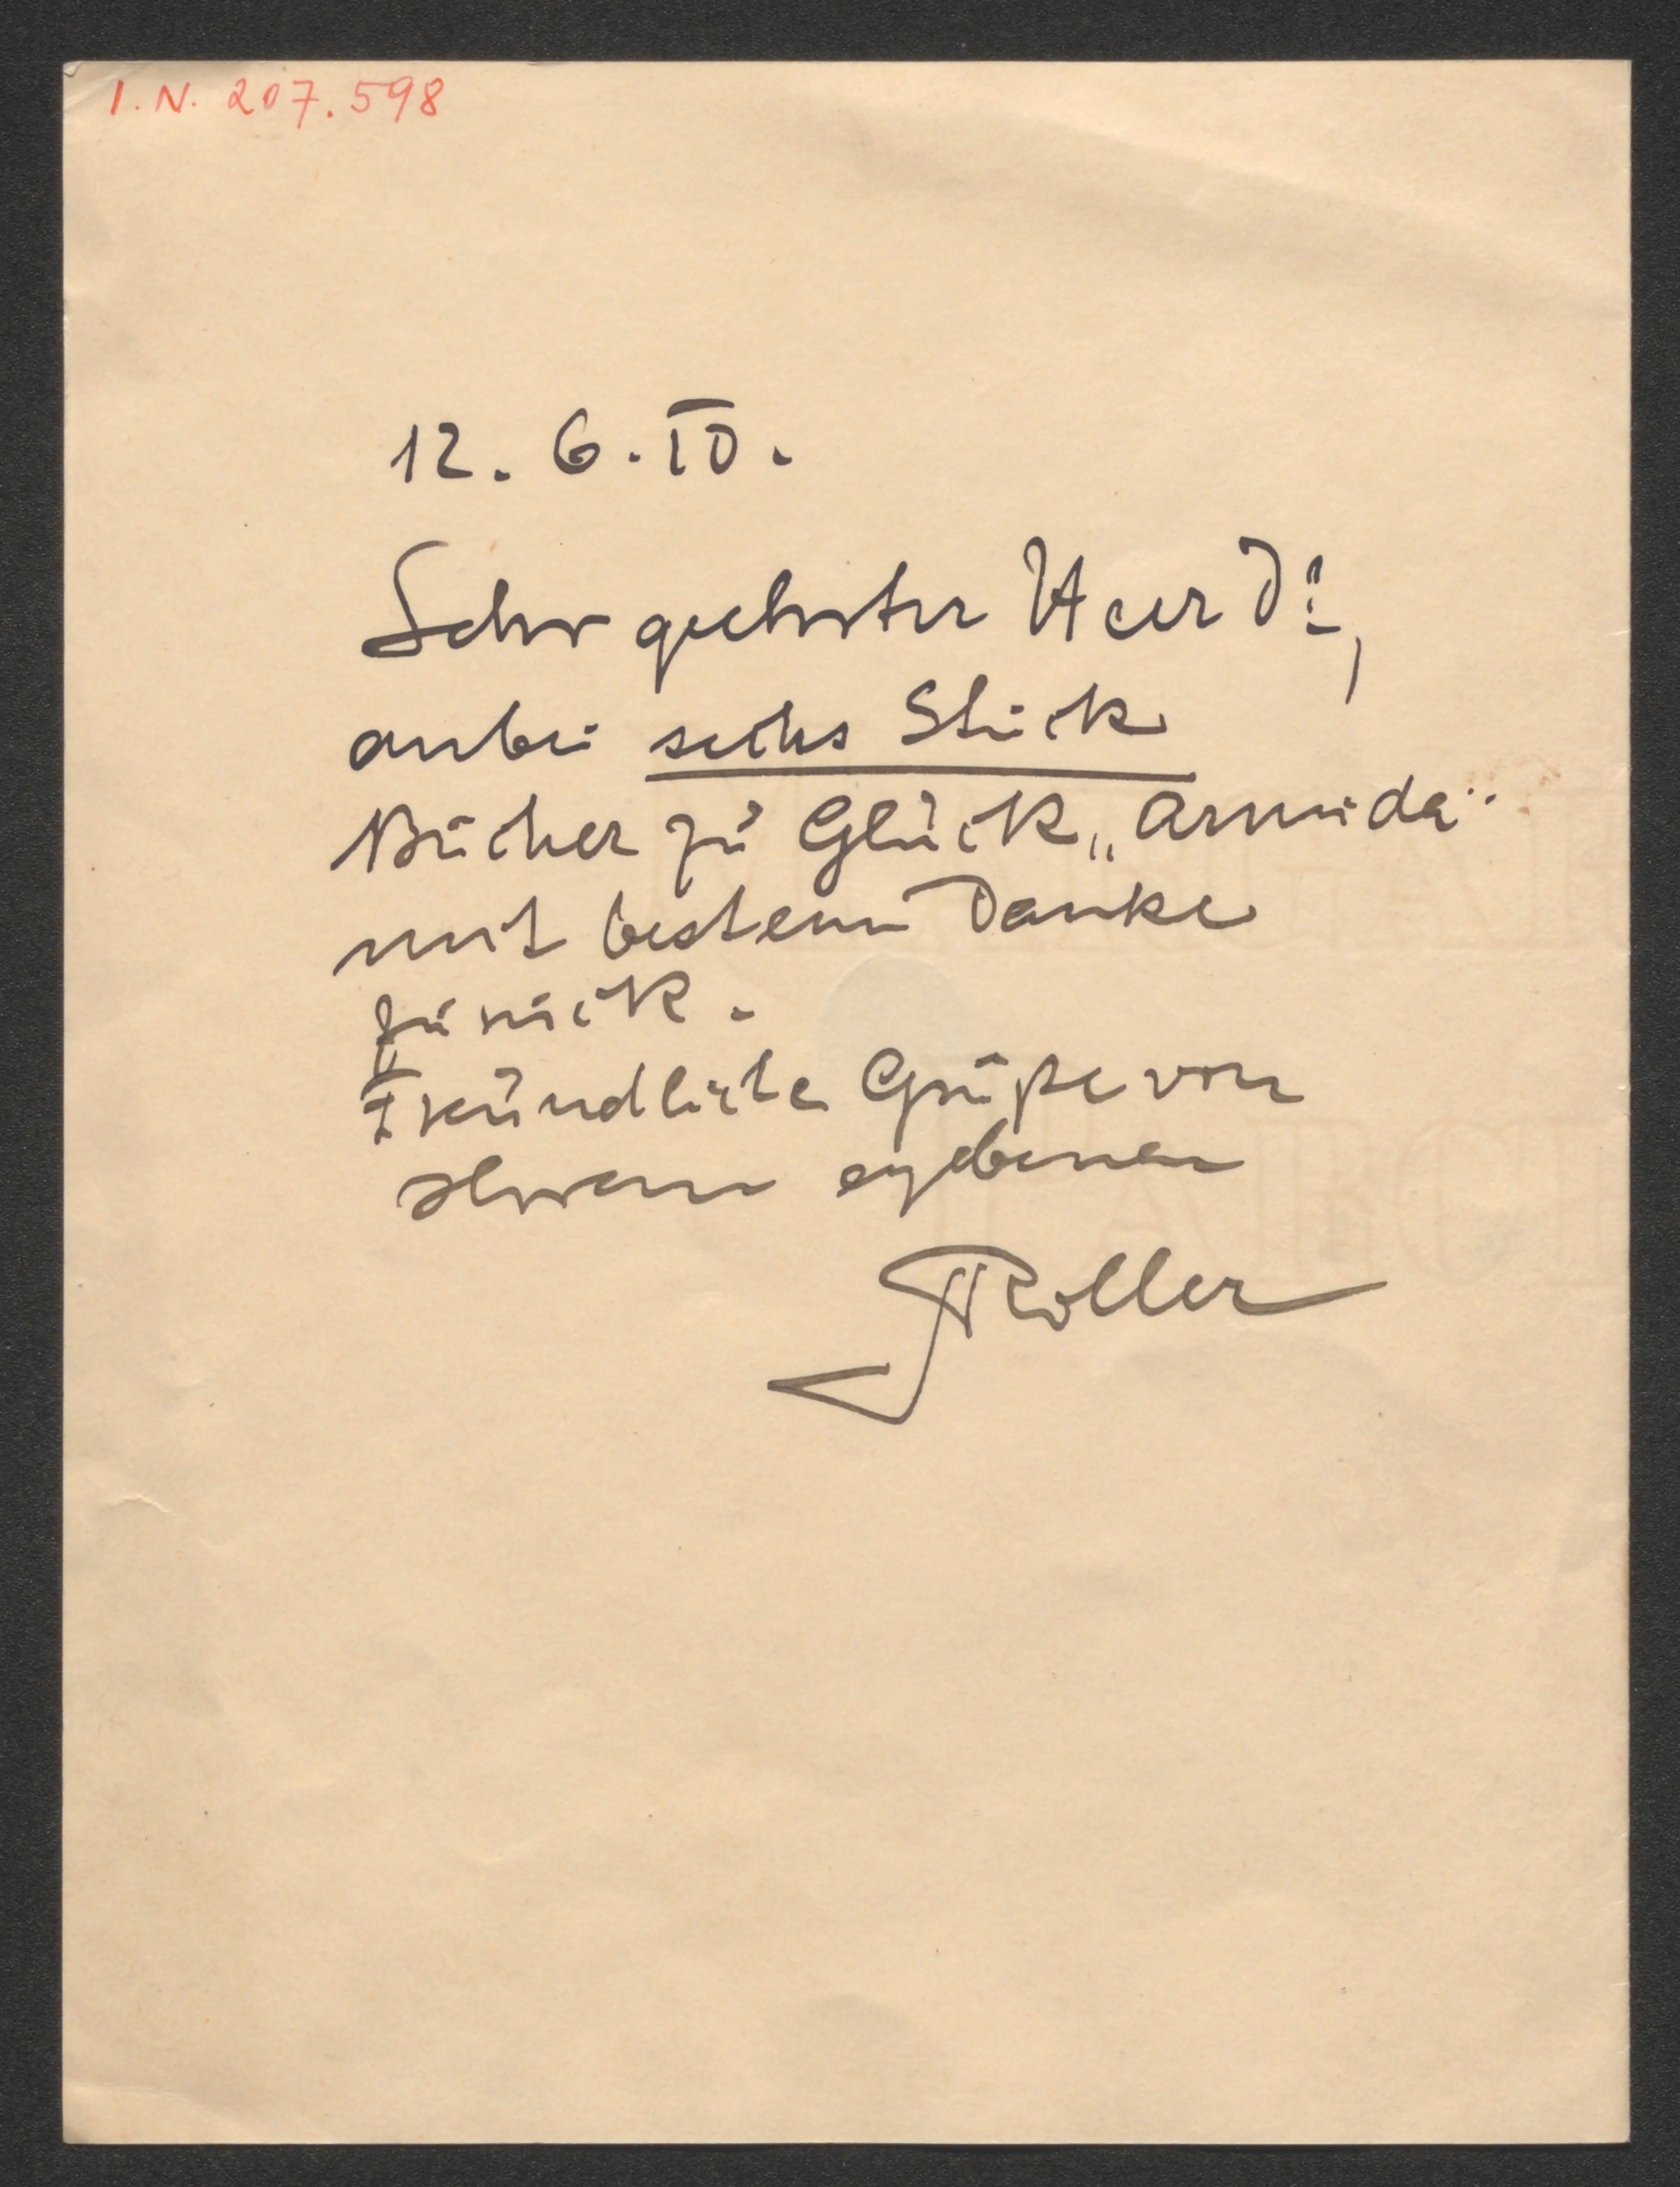 I.N. 207.598
12. 6. 10.
Sehr geehrter Herr Dr,
anbei sechs Stück
Bücher zu Gluck „Armida"
mit bestem Danke
zurück.
Freundliche Grüße von
Ihrem ergebenen
Roller